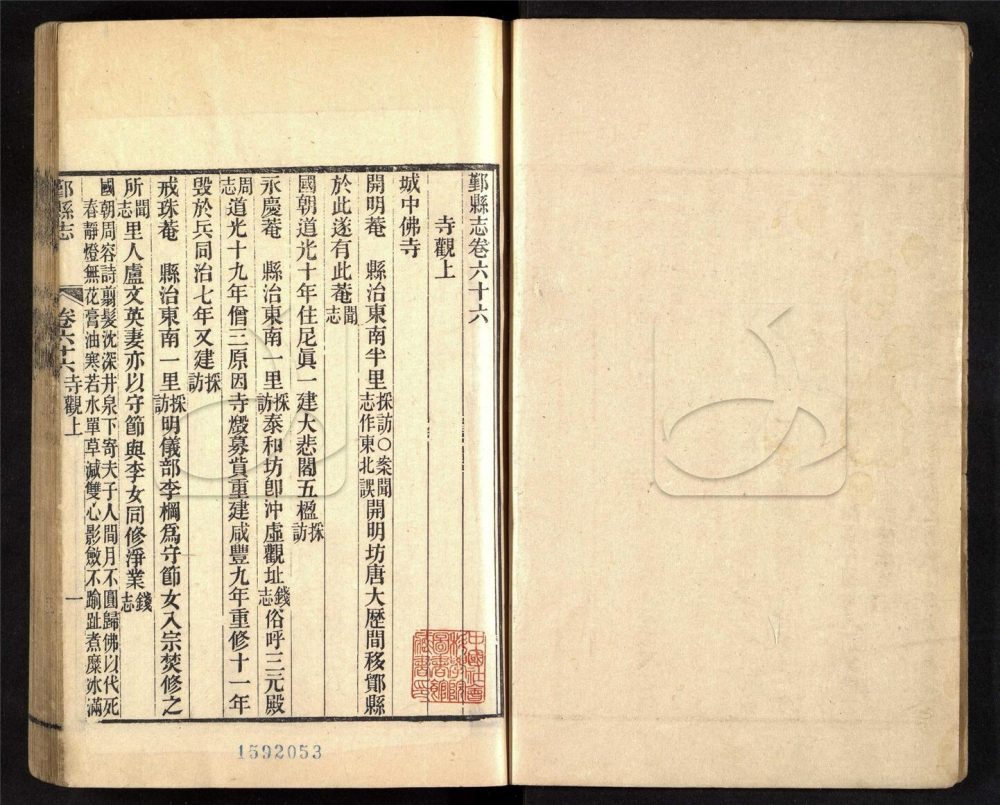 鄞縣志卷六十六
寺觀上
城中佛寺
開明菴　縣治東南半里採訪○案聞志作東北誤開明坊唐大歷間移鄮縣
於此遂有此菴聞志
國朝道光十年住尼眞一建大悲閣五楹採訪
永慶菴　縣治東南一里採訪泰和坊卽沖虛觀址錢志俗呼三元殿
周志道光十九年僧三原因寺燬募貲重建咸豐九年重修十一年
毀於兵同治七年又建採訪
戒珠菴　縣治東南一里採訪明儀部李棡爲守節女入宗焚修之
所聞志里人盧文英妻亦以守節與李女同修淨業錢志
國朝周容詩翦髮沈深井泉下寄夫子人間月不圓歸佛以代死
春靜燈無花膏油寒若水單草減雙心影斂不踰趾煮糜冰滿
鄞縣志
卷六十六　寺觀上
一
中國社會科學院圖書館藏書印
1592053